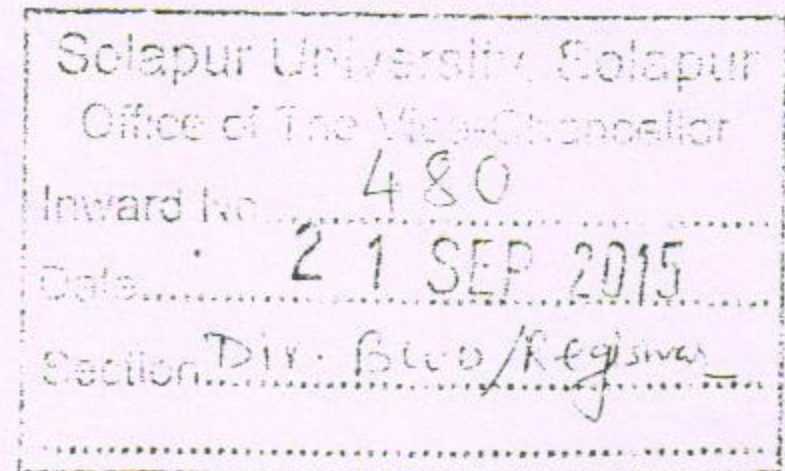 Solapur University, Solapur
Office of The Vice-Chancellor
Inward No. 480
Date 21 SEP 2015
Section Dir. BCUD/Registrar